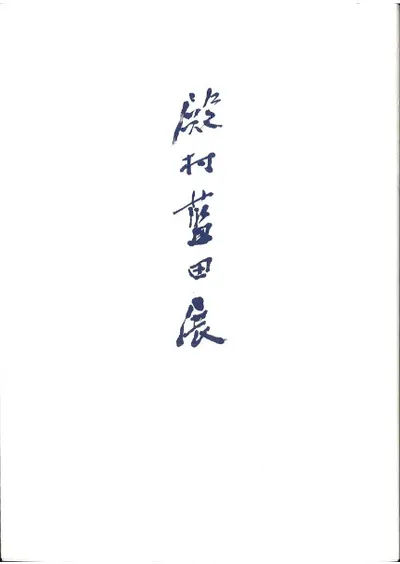 殿村藍田展